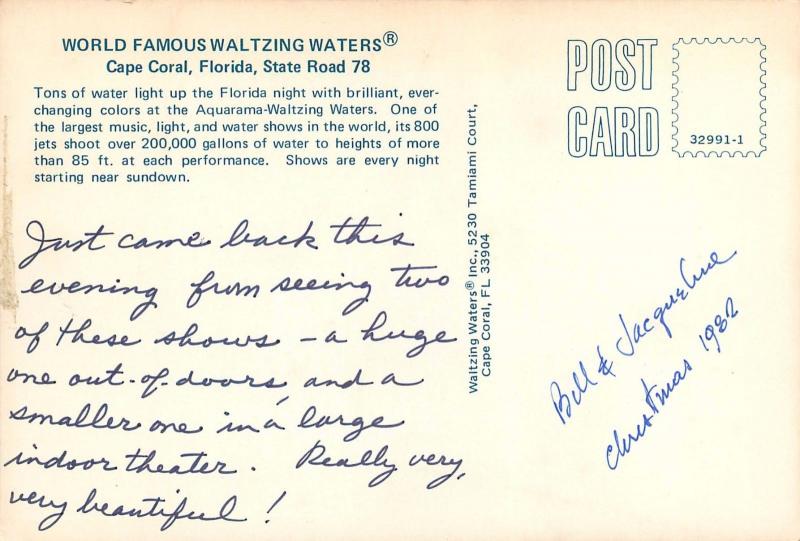 WORLD FAMOUS WALTZING WATERS®
Cape Coral, Florida, State Road 78
Tons of water light up the Florida night with brilliant, ever-
changing colors at the Aquarama-Waltzing Waters. One of
the largest music, light, and water shows in the world, its 800
jets shoot over 200,000 gallons of water to heights of more
than 85 ft. at each performance. Shows are every night
starting near sundown.
Just came back this
evening from seeing two
of these shows – a huge
one out-of-doors, and a
smaller one in a large
indoor theater. Really very,
very beautiful!
Waltzing Waters® Inc., 5230 Tamiami Court,
Cape Coral, FL 33904
POST
CARD
32991-1
Bill & Jacqueline
Christmas 1982